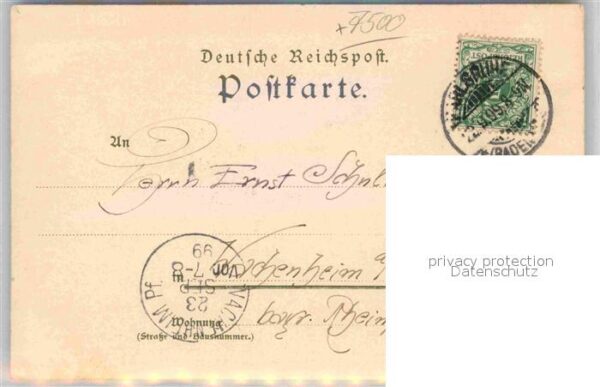 +4500
Deutsche Reichspost.
Postkarte.
An
Herrn Ernst
Wachenheim
bayr. Rhein
Wohnung
(Straße und Hausnummer.)
WACHENHEIM Pf.
23
SEP
Vor. 7-8
99
(BADEN)
privacy protection
Datenschutz